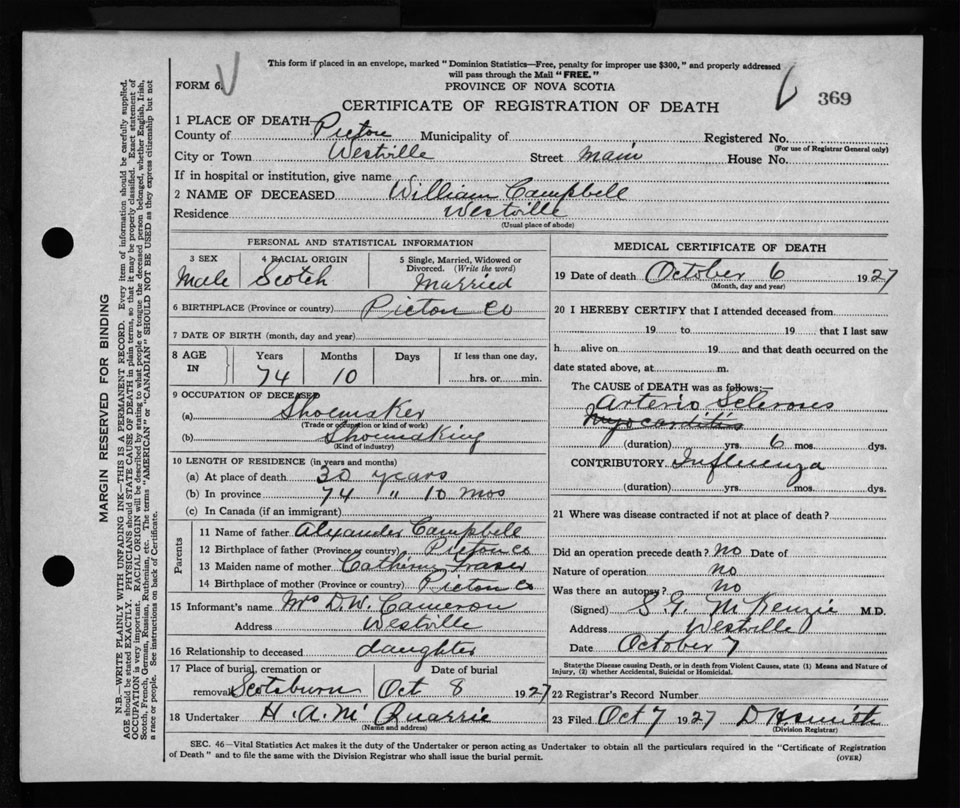 This form if placed in an envelope, marked "Dominion Statistics—Free, penalty for improper use $300," and properly addressed
will pass through the Mail "FREE."
FORM 6. √
PROVINCE OF NOVA SCOTIA
369
CERTIFICATE OF REGISTRATION OF DEATH
1 PLACE OF DEATH—
County of Pictou Municipality of Registered No.
(For use of Registrar General only)
City or Town Westville Street Main House No.
If in hospital or institution, give name
2 NAME OF DECEASED William Campbell
Residence Westville
(Usual place of abode)
PERSONAL AND STATISTICAL INFORMATION
3 SEX 4 RACIAL ORIGIN 5 Single, Married, Widowed or
Divorced. (Write the word)
Male Scotch Married
6 BIRTHPLACE (Province or country) Picton Co
7 DATE OF BIRTH (month, day and year)
8 AGE IN Years Months Days If less than one day,
74 10 hrs. or min.
9 OCCUPATION OF DECEASED
(a) Shoemaker
(Trade or occupation or kind of work)
(b) Shoemaking
(Kind of industry)
10 LENGTH OF RESIDENCE (in years and months)
(a) At place of death 30 years
(b) In province 74 " 10 mos
(c) In Canada (if an immigrant)
Parents
11 Name of father Alexander Campbell
12 Birthplace of father (Province or country) Picton Co
13 Maiden name of mother Catherine Fraser
14 Birthplace of mother (Province or country) Picton Co
15 Informant's name Mrs D. W. Cameron
Address Westville
16 Relationship to deceased daughter
17 Place of burial, cremation or Date of burial
removal Scotsburn Oct 8 1927
18 Undertaker H. A. Mc Quarrie
(Name and address)
MEDICAL CERTIFICATE OF DEATH
19 Date of death October 6 1927
(Month, day and year)
20 I HEREBY CERTIFY that I attended deceased from
19 to 19 that I last saw
h alive on 19 and that death occurred on the
date stated above, at m.
The CAUSE of DEATH was as follows:—
Arterio Scleroses
Myocarditis
(duration) yrs. 6 mos. dys.
CONTRIBUTORY Influenza
(duration) yrs. mos. dys.
21 Where was disease contracted if not at place of death?
Did an operation precede death? no Date of
Nature of operation no
Was there an autopsy? no
(Signed) S. G. McKenzie M.D.
Address Westville
Date October 7
State the Disease causing Death, or in death from Violent Causes, state (1) Means and Nature of
Injury, (2) whether Accidental, Suicidal or Homicidal.
22 Registrar's Record Number
23 Filed Oct 7 1927 D H Smith
(Division Registrar)
SEC. 46—Vital Statistics Act makes it the duty of the Undertaker or person acting as Undertaker to obtain all the particulars required in the "Certificate of Registration
of Death" and to file the same with the Division Registrar who shall issue the burial permit.
(OVER)
MARGIN RESERVED FOR BINDING
N.B.—WRITE PLAINLY WITH UNFADING INK—THIS IS A PERMANENT RECORD. Every item of information should be carefully supplied.
AGE should be stated EXACTLY. PHYSICIANS should STATE CAUSE OF DEATH in plain terms, so that it may be properly classified. Exact statement of
OCCUPATION is very important. RACIAL ORIGIN will be described by stating to what people or tongue the deceased person belonged, whether English, Irish,
Scotch, French, German, Russian, Ruthenian, etc. The terms "AMERICAN" or "CANADIAN" SHOULD NOT BE USED as they express citizenship but not
a race or people. See instructions on back of Certificate.